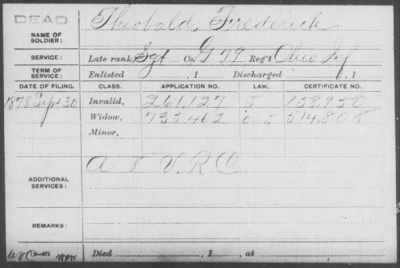 DEAD
NAME OF SOLDIER: Theobald, Frederick
SERVICE: Late rank, Sgt Co. G 79 Reg't Ohio Inf
TERM OF SERVICE: Enlisted , 1 Discharged , 1
DATE OF FILING. CLASS. APPLICATION NO. LAW. CERTIFICATE NO.
1878 Sept 30 Invalid, 261,127 138,950
Widow, 753,462 514,808
Minor,
ADDITIONAL SERVICES: V.R.C
REMARKS:
Died , 1 , at